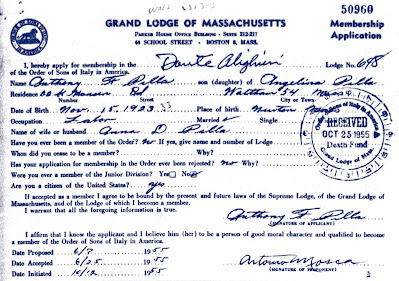 50960
GRAND LODGE OF MASSACHUSETTS
Membership
Application
PARKER HOUSE OFFICE BUILDING - SUITE 212-217
44 SCHOOL STREET - BOSTON 8, MASS.
I, hereby apply for membership in the Dante Alighieri Lodge No. 698
of the Order of Sons of Italy in America.
Name Anthony F. Pilla son (daughter) of Angelina Pilla
Residence Rd Waltham 54 Mass
City or Town
Date of Birth Nov. 15, 1923 33 Place of birth Newton Mass
Occupation Labor Married ✓ Single
Name of wife or husband Anna D. Pilla
Have you ever been a member of the Order? no If yes, give name and number of Lodge
When did you cease to be a member? Why?
Has your application for membership in the Order ever been rejected? no Why?
Were you ever a member of the Junior Division? Yes No
Are you a citizen of the United States? yes
Order Sons of Italy in America
RECEIVED
OCT 25 1955
Death Fund
Grand Lodge of Mass.
If accepted as a member I agree to be bound by the present and future laws of the Supreme Lodge, of the Grand Lodge of
Massachusetts, and of the Lodge of which I become a member.
I warrant that all the foregoing information is true.
Anthony F. Pilla
(SIGNATURE OF APPLICANT)
I affirm that I know the applicant and I believe him (her) to be a person of good moral character and qualified to become
a member of the Order of Sons of Italy in America.
Date Proposed 6/7 1955
Date Accepted 6/25 1955
Date Initiated 10/12 1955
Antonio Mosca
(SIGNATURE OF PROPONENT)